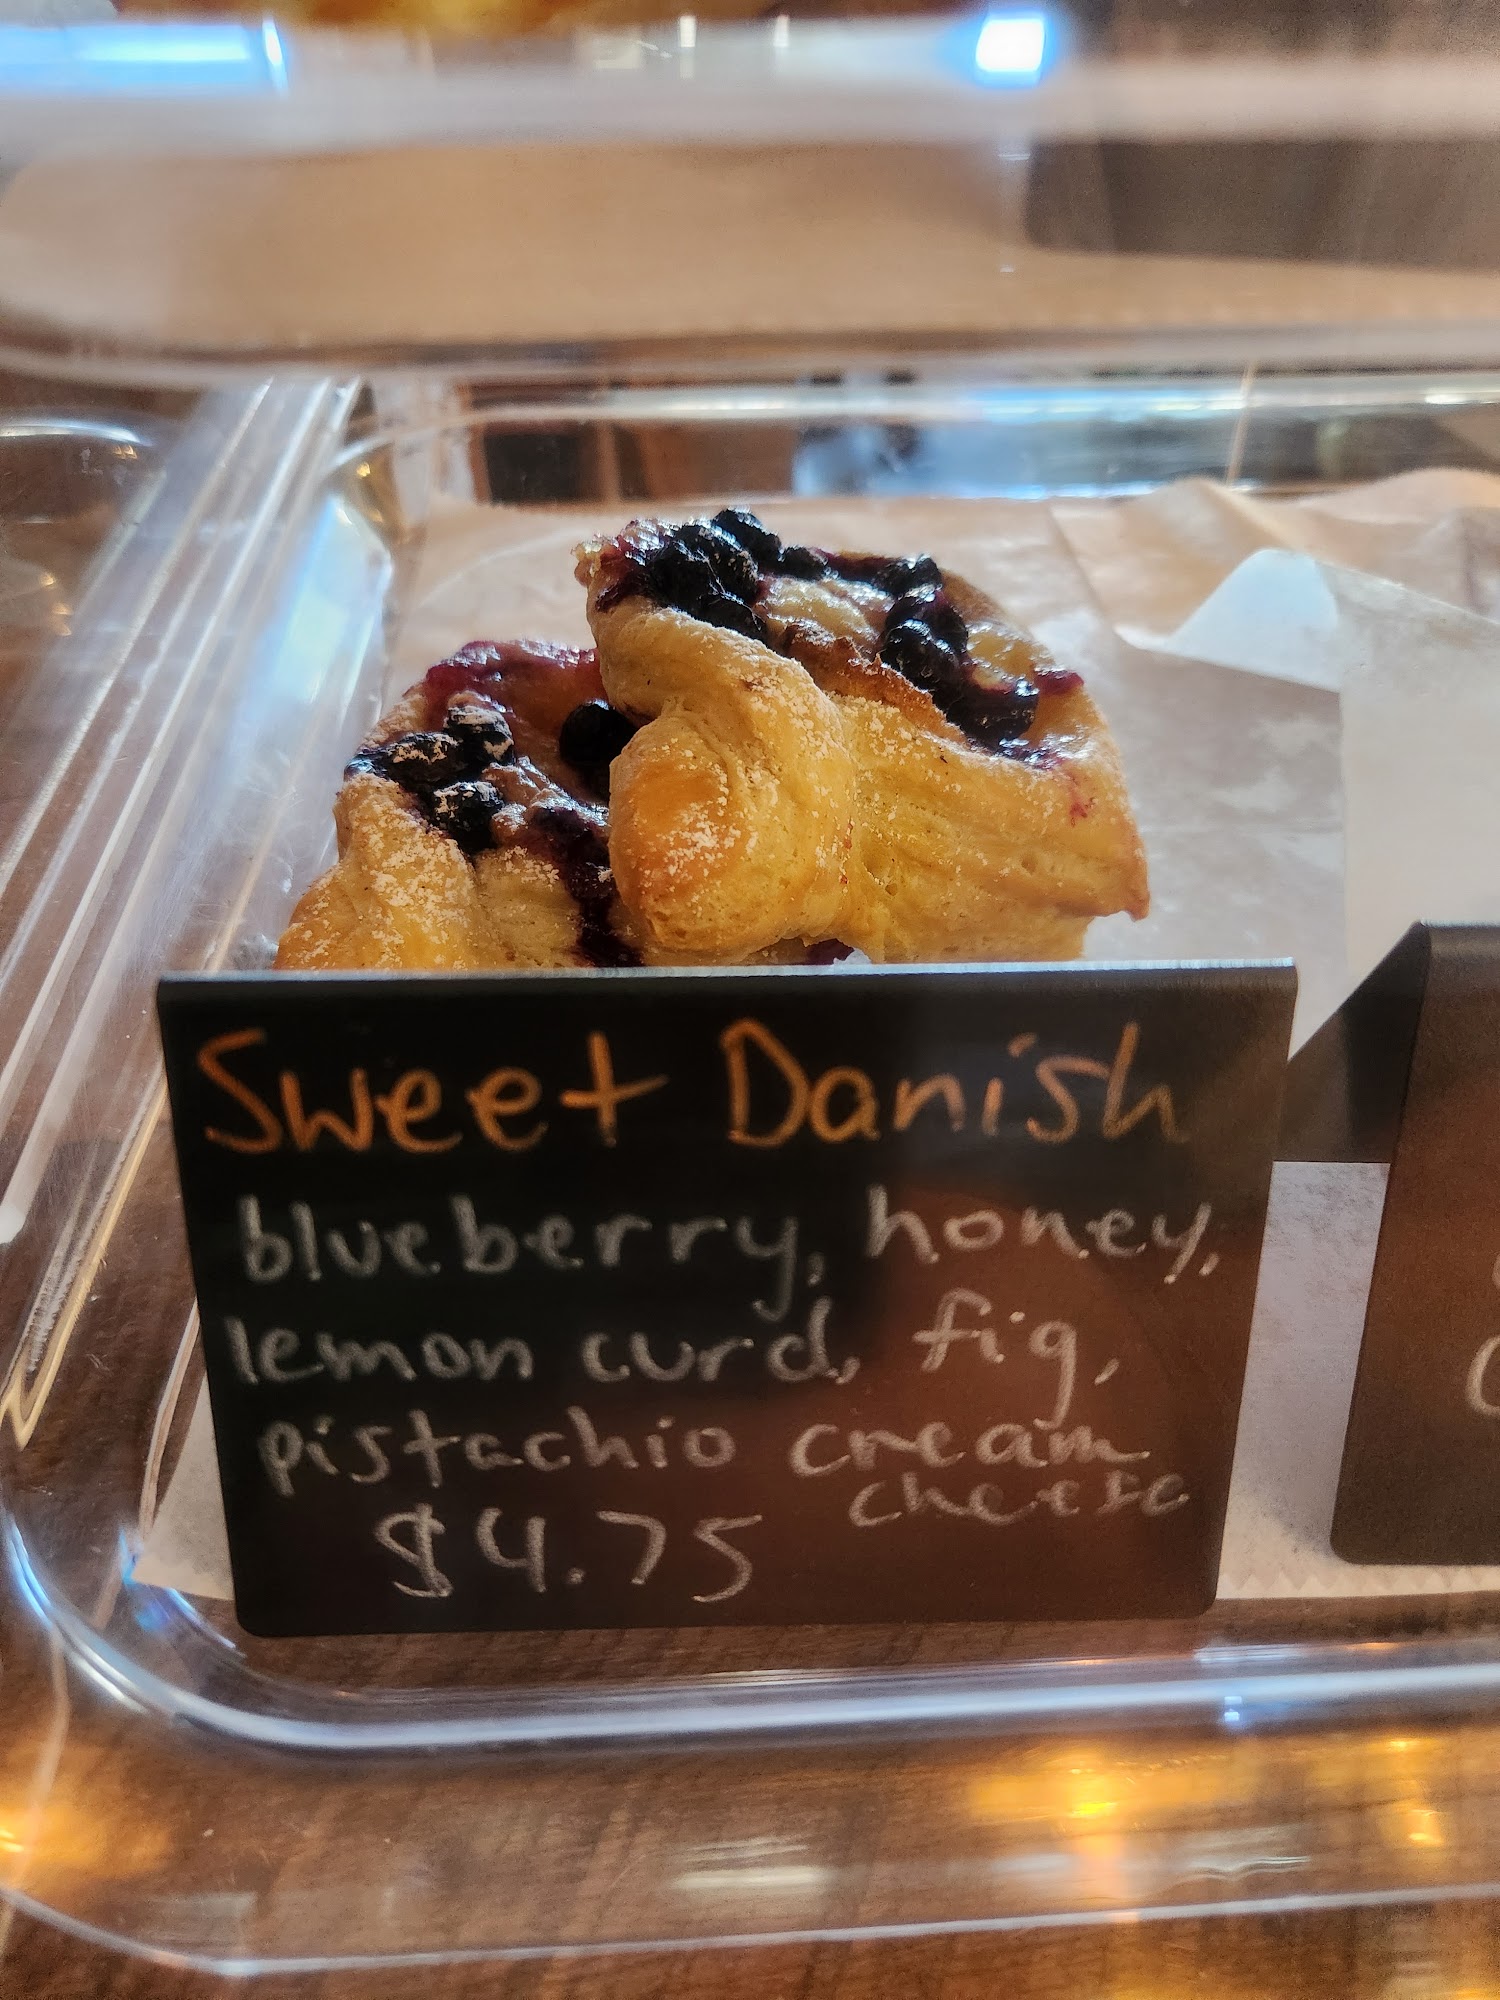 Sweet Danish
blueberry, honey,
lemon curd, fig,
pistachio cream
cheese
$4.75